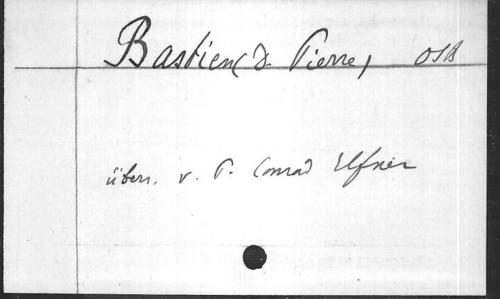 Bastien (D. Pierre) OSB
übers. v. P. Conrad Elfner